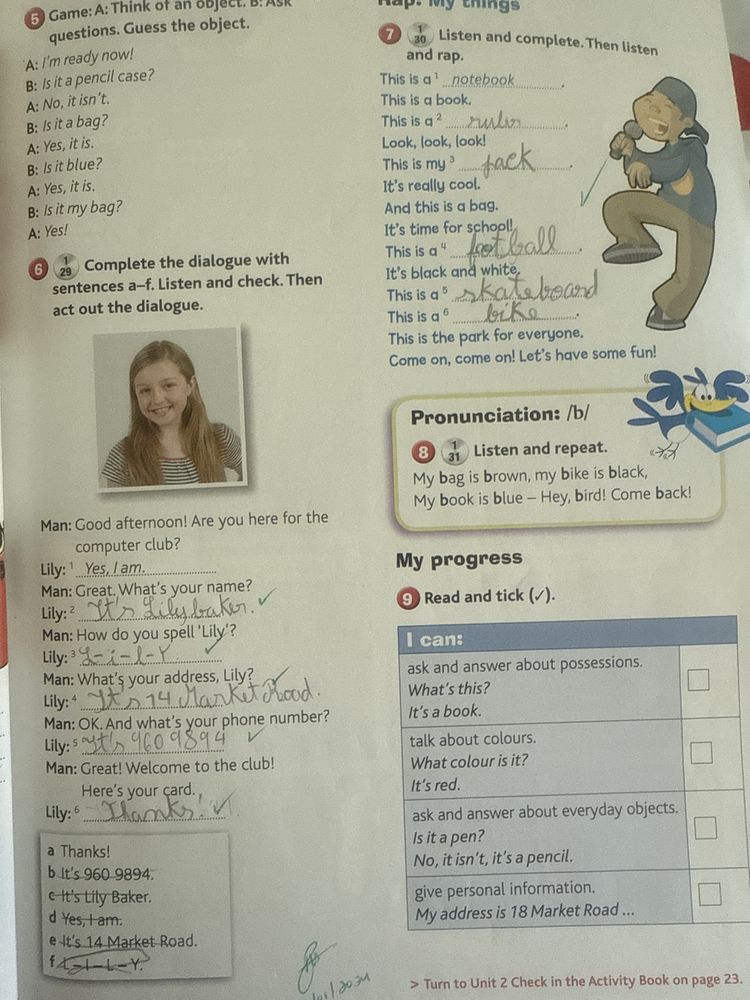 5 Game: A: Think of an object. B: Ask
questions. Guess the object.
A: I'm ready now!
B: Is it a pencil case?
A: No, it isn't.
B: Is it a bag?
A: Yes, it is.
B: Is it blue?
A: Yes, it is.
B: Is it my bag?
A: Yes!
6 1 29 Complete the dialogue with
sentences a–f. Listen and check. Then
act out the dialogue.
Man: Good afternoon! Are you here for the
computer club?
Lily: 1 Yes, I am.
Man: Great. What's your name?
Lily: 2 It's Lily baker. ✓
Man: How do you spell 'Lily'?
Lily: 3 L-i-l-Y ✓
Man: What's your address, Lily? ✓
Lily: 4 It's 14 Market Road.
Man: OK. And what's your phone number?
Lily: 5 It's 960 9894 ✓
Man: Great! Welcome to the club!
Here's your card.
Lily: 6 Thanks! ✓
a Thanks!
b It's 960 9894.
c It's Lily Baker.
d Yes, I am.
e It's 14 Market Road.
f L–I–L–Y.
Rap: My things
7 1 30 Listen and complete. Then listen
and rap.
This is a 1 notebook.
This is a book.
This is a 2 ruler.
Look, look, look!
This is my 3 pack.
It's really cool.
And this is a bag.
It's time for school!
This is a 4 football.
It's black and white,
This is a 5 skateboard
This is a 6 bike.
This is the park for everyone.
Come on, come on! Let's have some fun!
Pronunciation: /b/
8 1 31 Listen and repeat.
My bag is brown, my bike is black,
My book is blue – Hey, bird! Come back!
My progress
9 Read and tick (✓).
I can:
ask and answer about possessions.
What's this?
It's a book.
talk about colours.
What colour is it?
It's red.
ask and answer about everyday objects.
Is it a pen?
No, it isn't, it's a pencil.
give personal information.
My address is 18 Market Road ...
> Turn to Unit 2 Check in the Activity Book on page 23.